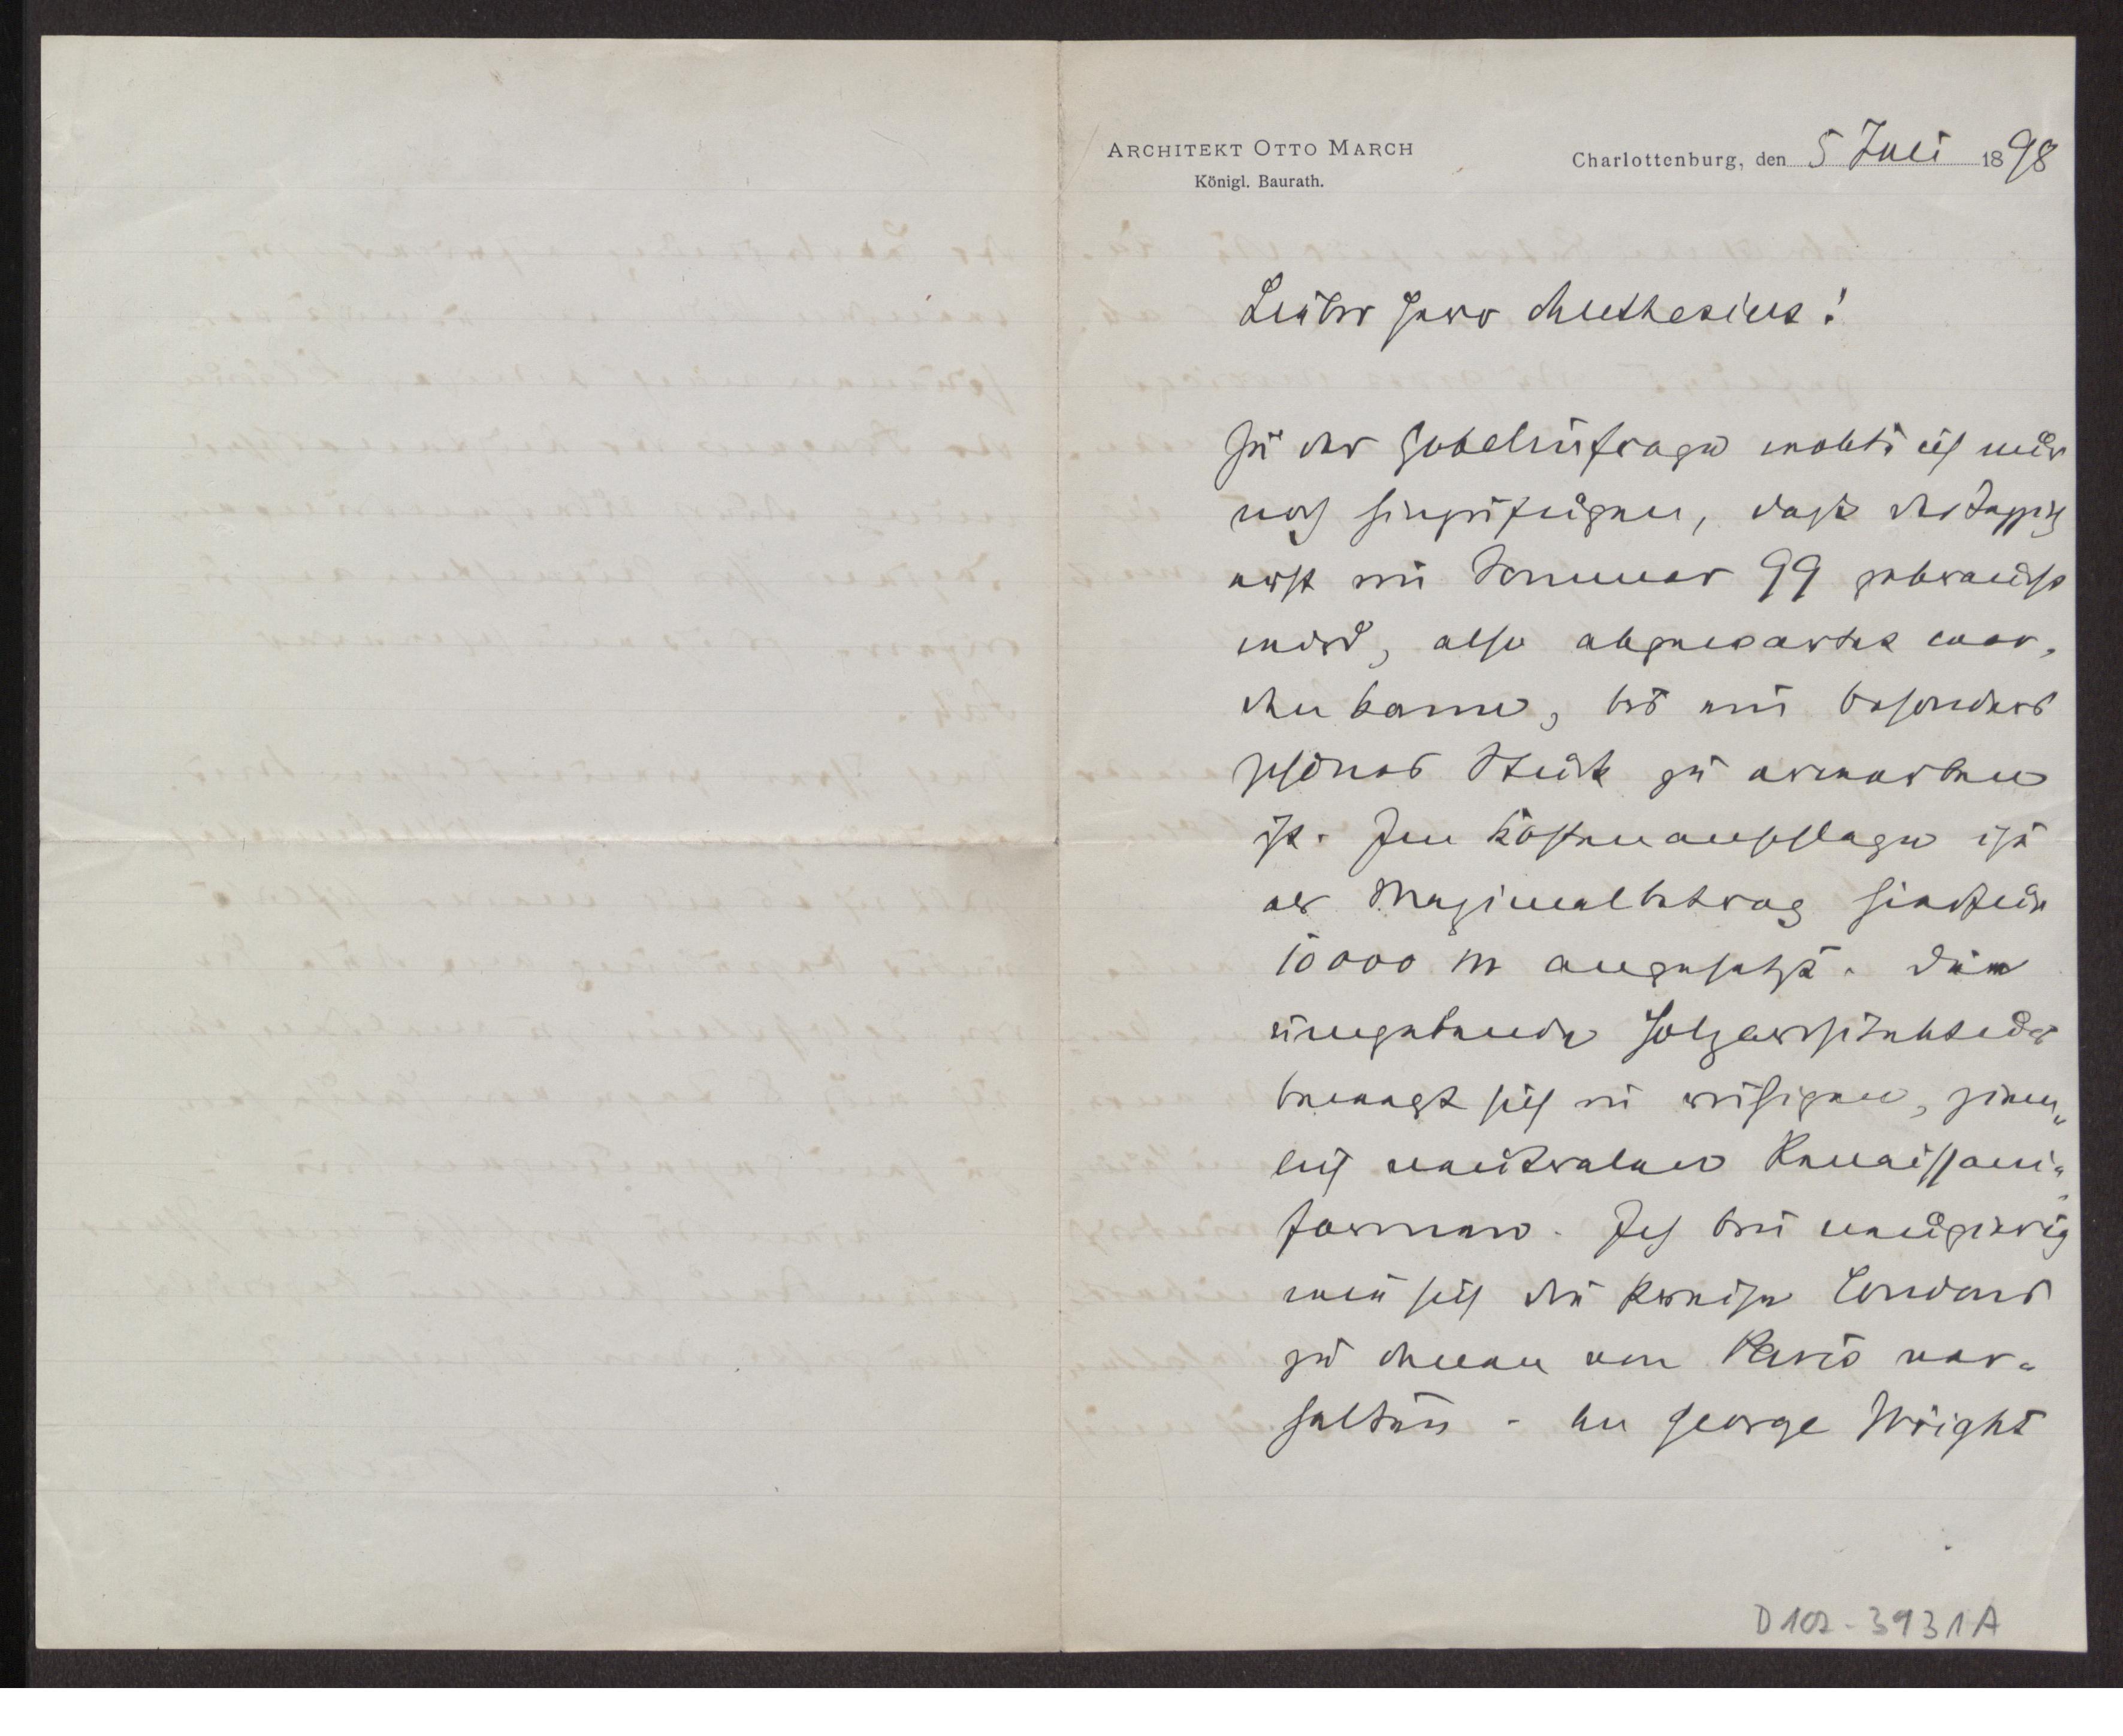 ARCHITEKT OTTO MARCH
Königl. Baurath.
Charlottenburg, den 5 Juli 1898
Lieber Herr Muthesius!
Zu der Gobelinfrage wollte ich nur
noch hinzufügen, daß der Teppich
erst im Sommer 99 gebraucht
wird, also abgewartet wer-
den kann, bis ein besonders
schönes Stück zu erwarten
ist. Im Kostenanschlage ist
als Maximalbetrag hierfür
10000 M angesetzt. Die
umgebende Holzarchitektur
bewegt sich in ruhigen, ziem-
lich neutralen Renaissance-
formen. Ich bin neugierig
wie sich die Preise Londons
zu denen von Paris ver-
halten. An George Wright
D102-3931A